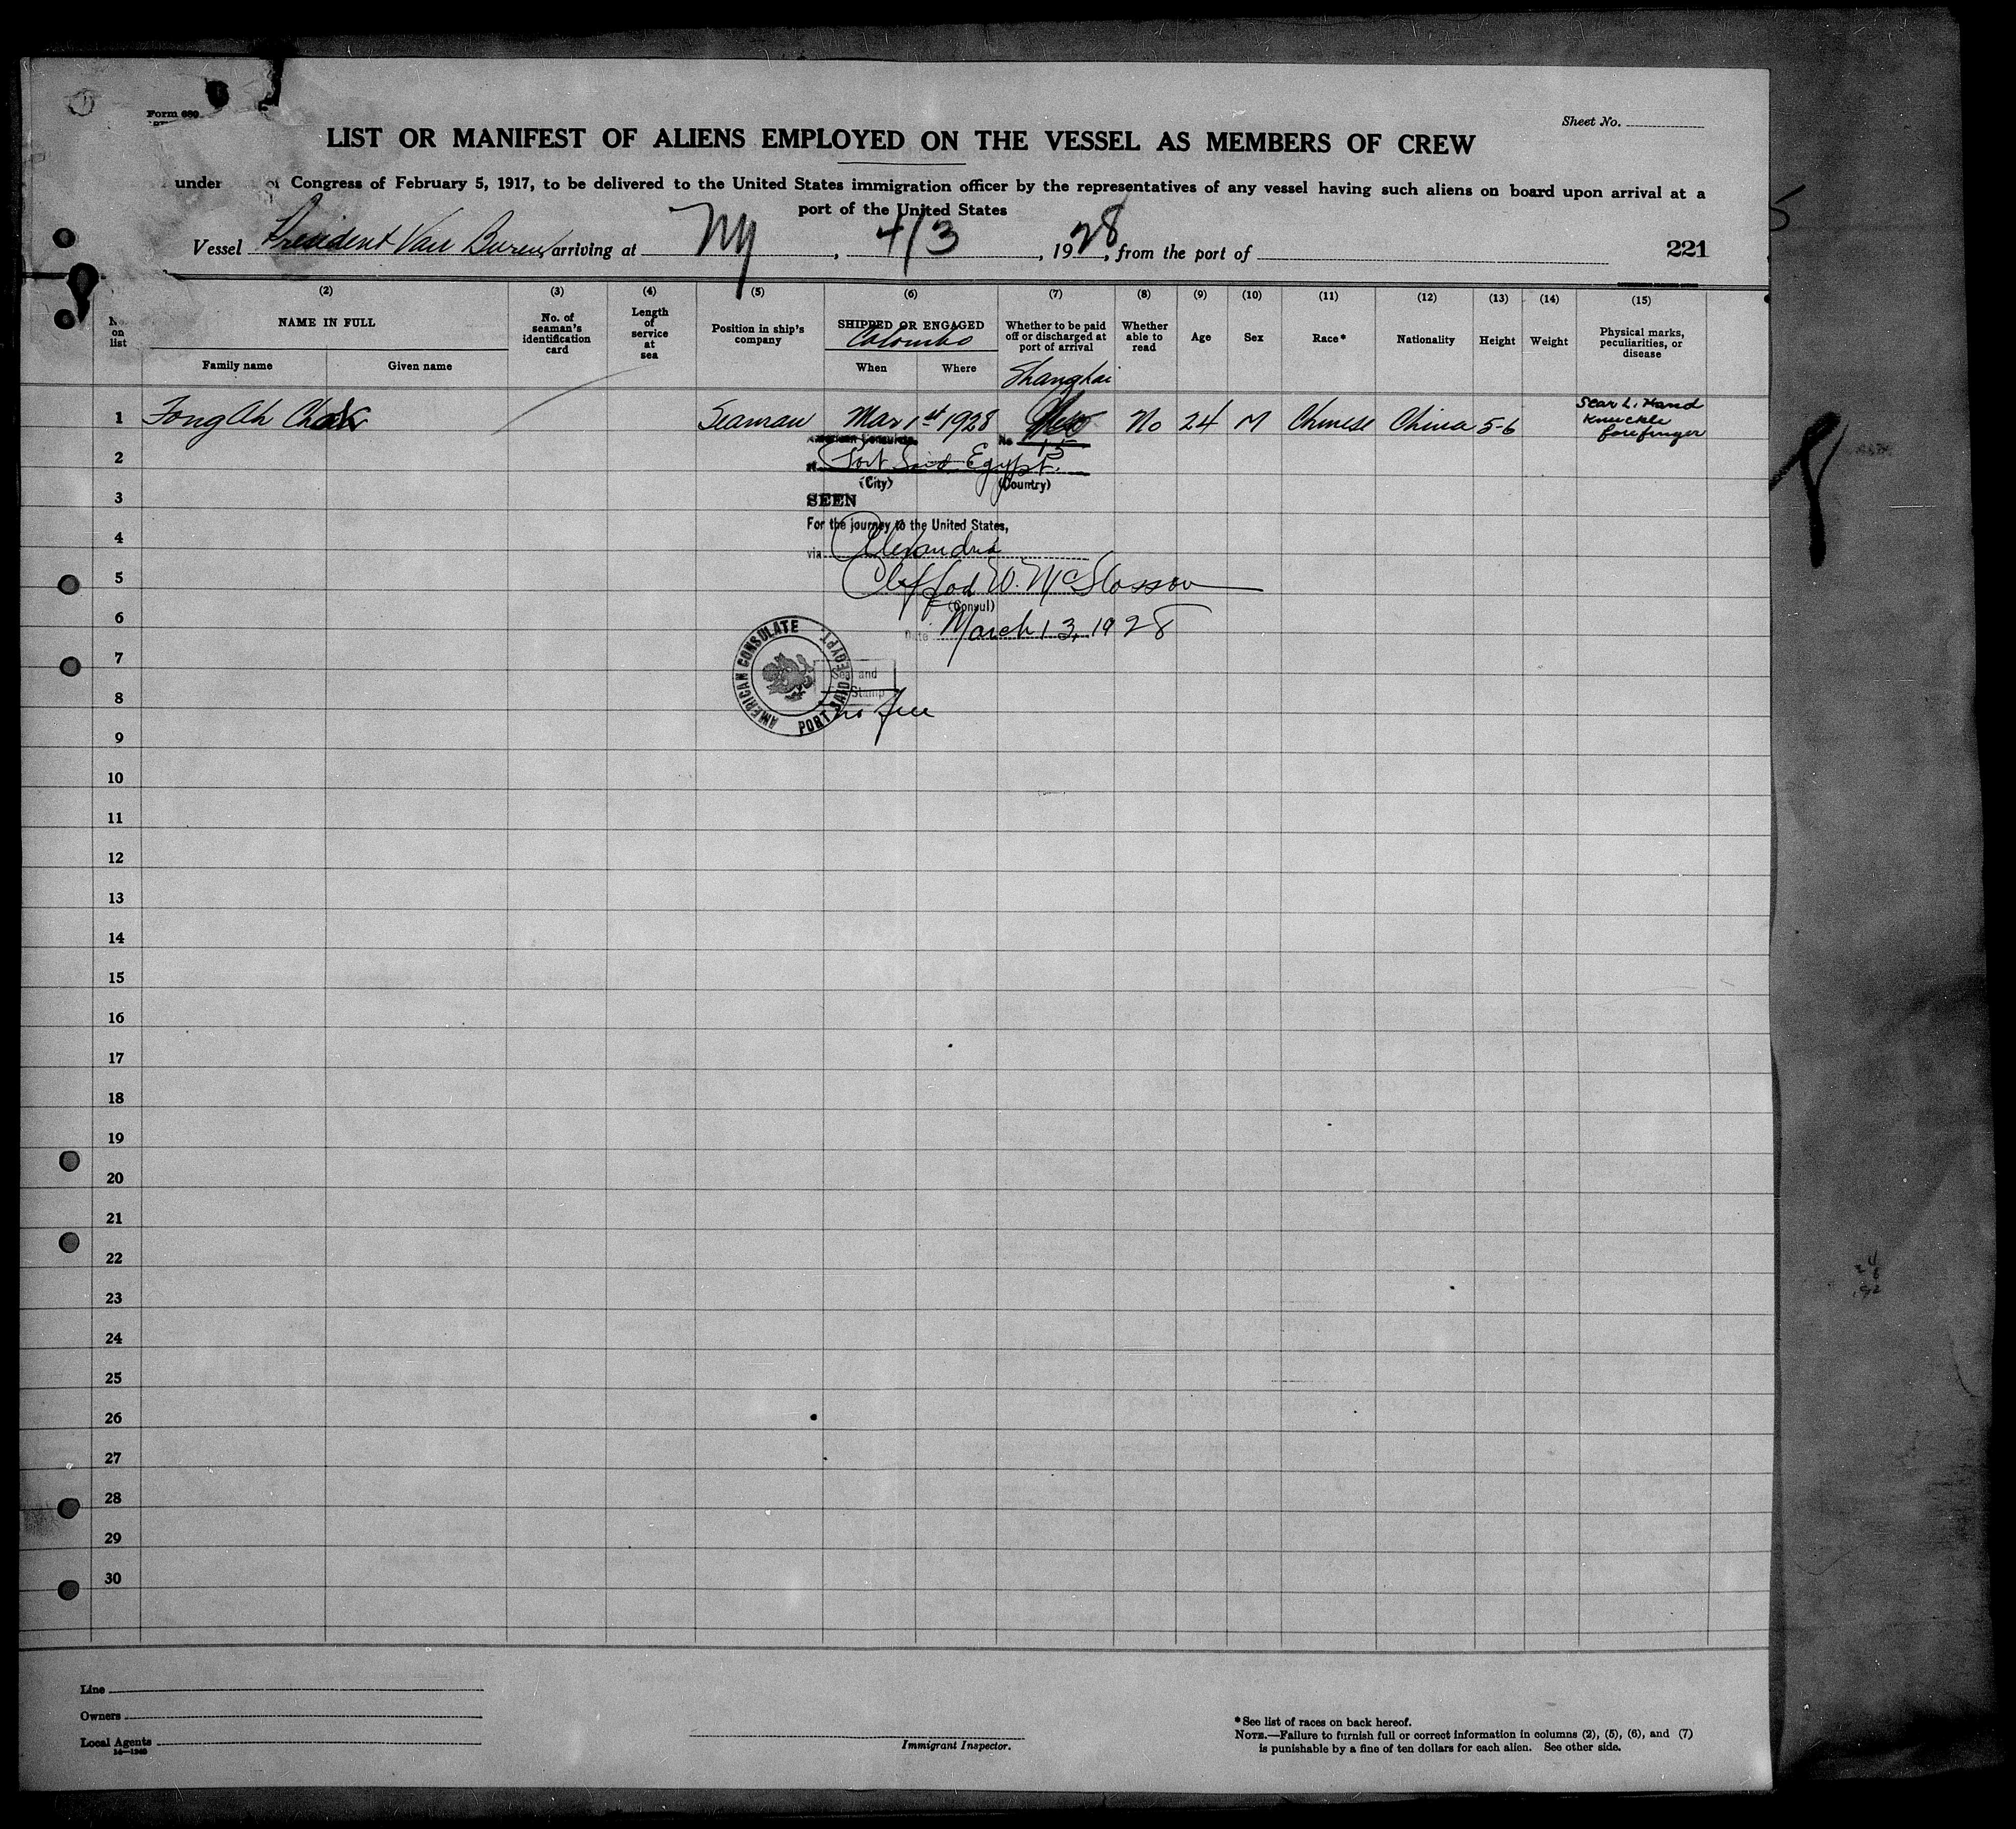 Form 680
Sheet No.
LIST OR MANIFEST OF ALIENS EMPLOYED ON THE VESSEL AS MEMBERS OF CREW
under of Congress of February 5, 1917, to be delivered to the United States immigration officer by the representatives of any vessel having such aliens on board upon arrival at a
port of the United States
Vessel President Van Buren, arriving at NY, 4/3, 1928, from the port of
221
No. on list
(2) NAME IN FULL
Family name Given name
(3) No. of seaman's identification card
(4) Length of service at sea
(5) Position in ship's company
(6) SHIPPED OR ENGAGED
Colombo
When Where
(7) Whether to be paid off or discharged at port of arrival
(8) Whether able to read
(9) Age
(10) Sex
(11) Race*
(12) Nationality
(13) Height
(14) Weight
(15) Physical marks, peculiarities, or disease
Shanghai
1 Fong Ah Seaman Mar 1st 1928 No 24 M Chinese China 5-6 Scar L. Hand Knuckle forefinger
American Consulate No 15
2 at Port Said Egypt.
(City) (Country)
3 SEEN
For the journey to the United States,
4 via Alexandria
5 W. McSlosson
(Consul)
6 Date March 13, 1928
AMERICAN CONSULATE PORT SAID EGYPT
7 Seal and
8 Stamp
no fee
9
10
11
12
13
14
15
16
17
18
19
20
21
22
23
24
25
26
27
28
29
30
Line
Owners
Local Agents
Immigrant Inspector.
*See list of races on back hereof.
NOTE.—Failure to furnish full or correct information in columns (2), (5), (6), and (7)
is punishable by a fine of ten dollars for each alien. See other side.